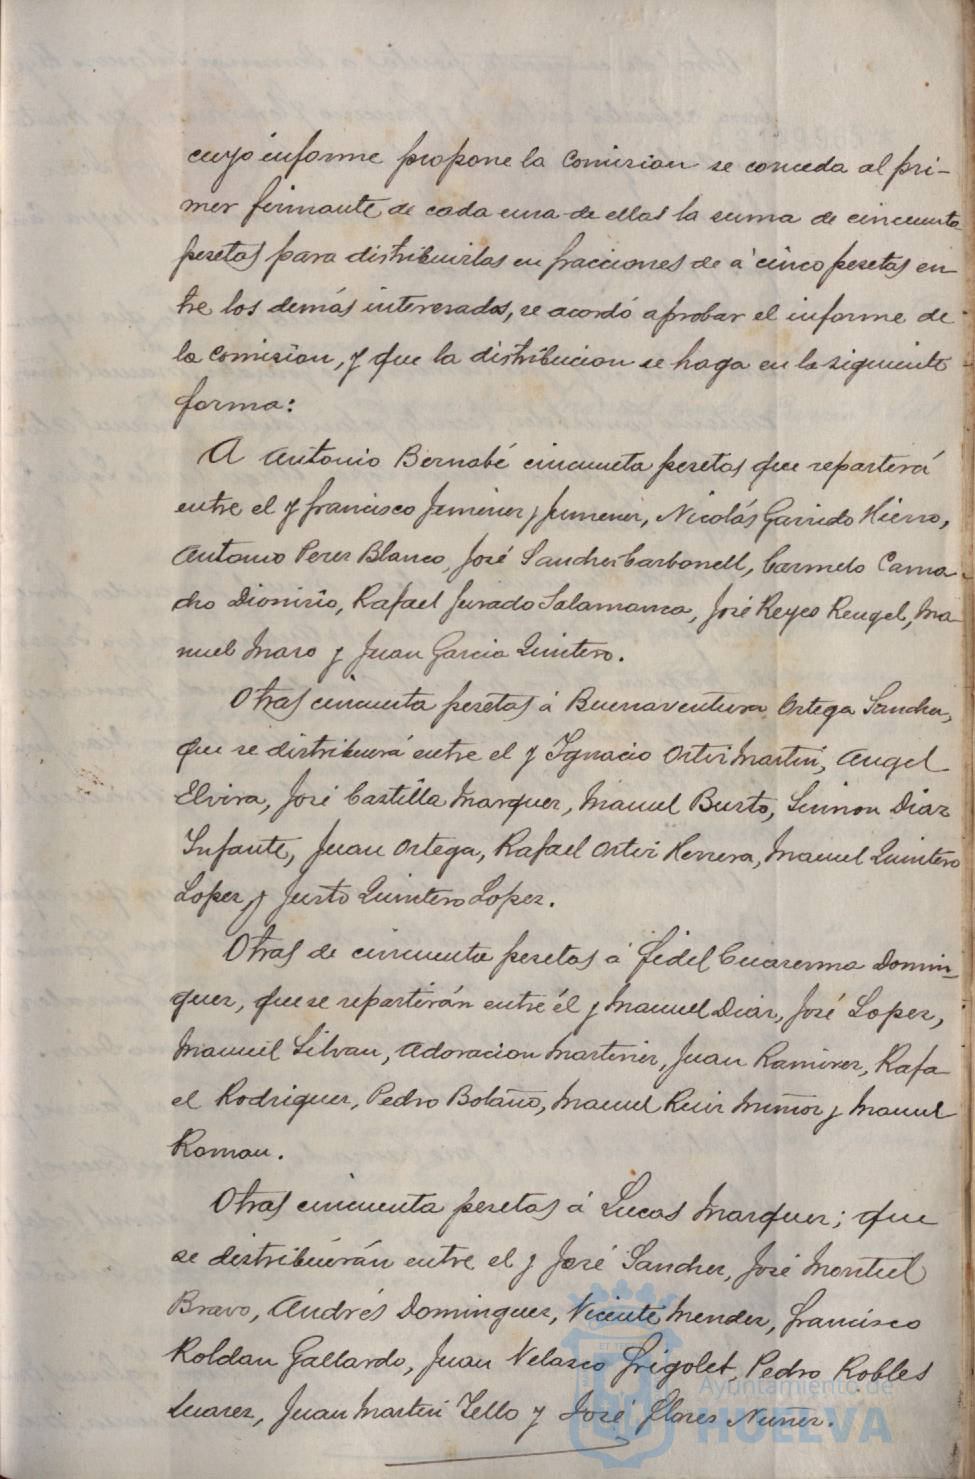 cuyo informe propone la Comision se conceda al pri-
mer firmante de cada una de ellas la suma de cincuenta
pesetas para distribuirlas en fracciones de á cinco pesetas en
tre los demás interesados, se acordó aprobar el informe de
la Comision, y que la distribucion se haga en la siguiente
forma:
A Antonio Bernabé cincuenta pesetas que repartirá
entre el y Francisco Jimenez y Jimenez, Nicolás Garrido Hierro,
Antonio Perez Blanco, José Sanchez Carbonell, Carmelo Cama
cho Dionisio, Rafael Jurado Salamanca, José Reyes Rengel, Ma
nuel Maso y Juan Garcia Quintero.
Otras cincuenta pesetas á Buenaventura Ortega Sanchez,
que se distribuirá entre el y Ignacio Ortiz Martin, Angel
Elvira, José Castilla Marquez, Manuel Busto, Simon Diaz
Infante, Juan Ortega, Rafael Ortiz Herrera, Manuel Quintero
Lopez y Justo Quintero Lopez.
Otras de cincuenta pesetas á Fidel Cuaresma Domin-
guez, que se repartirán entre él y Manuel Diaz, José Lopez,
Manuel Silvan, Adoracion Martinez, Juan Ramirez, Rafa
el Rodriguez, Pedro Bolaño, Manuel Ruiz Muñoz y Manuel
Roman.
Otras cincuenta pesetas á Lucas Marquez; que
se distribuirán entre el y José Sanchez, José Montiel
Bravo, Andrés Dominguez, Vicente Mendez, Francisco
Roldan Gallardo, Juan Velasco Grigolet, Pedro Robles
Suarez, Juan Martin Tello y José Flores Nuñez.
Ayuntamiento de
HUELVA